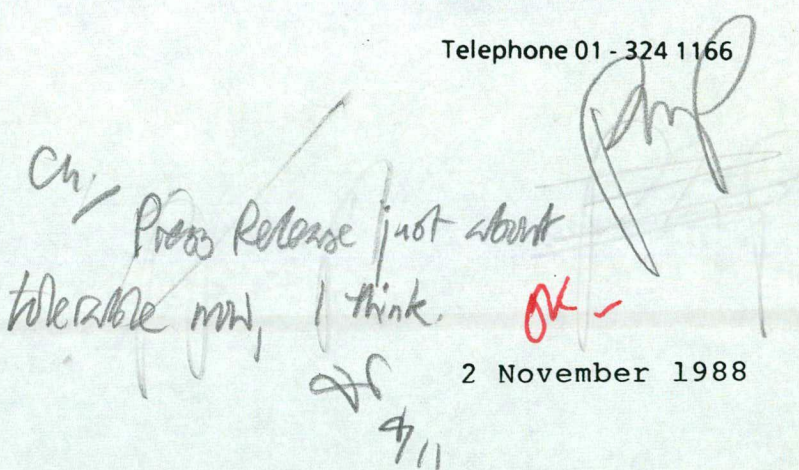 Telephone 01 - 324 1166
Ch,
Press Release just about
tolerable now, I think.
OK -
2 November 1988
4/11